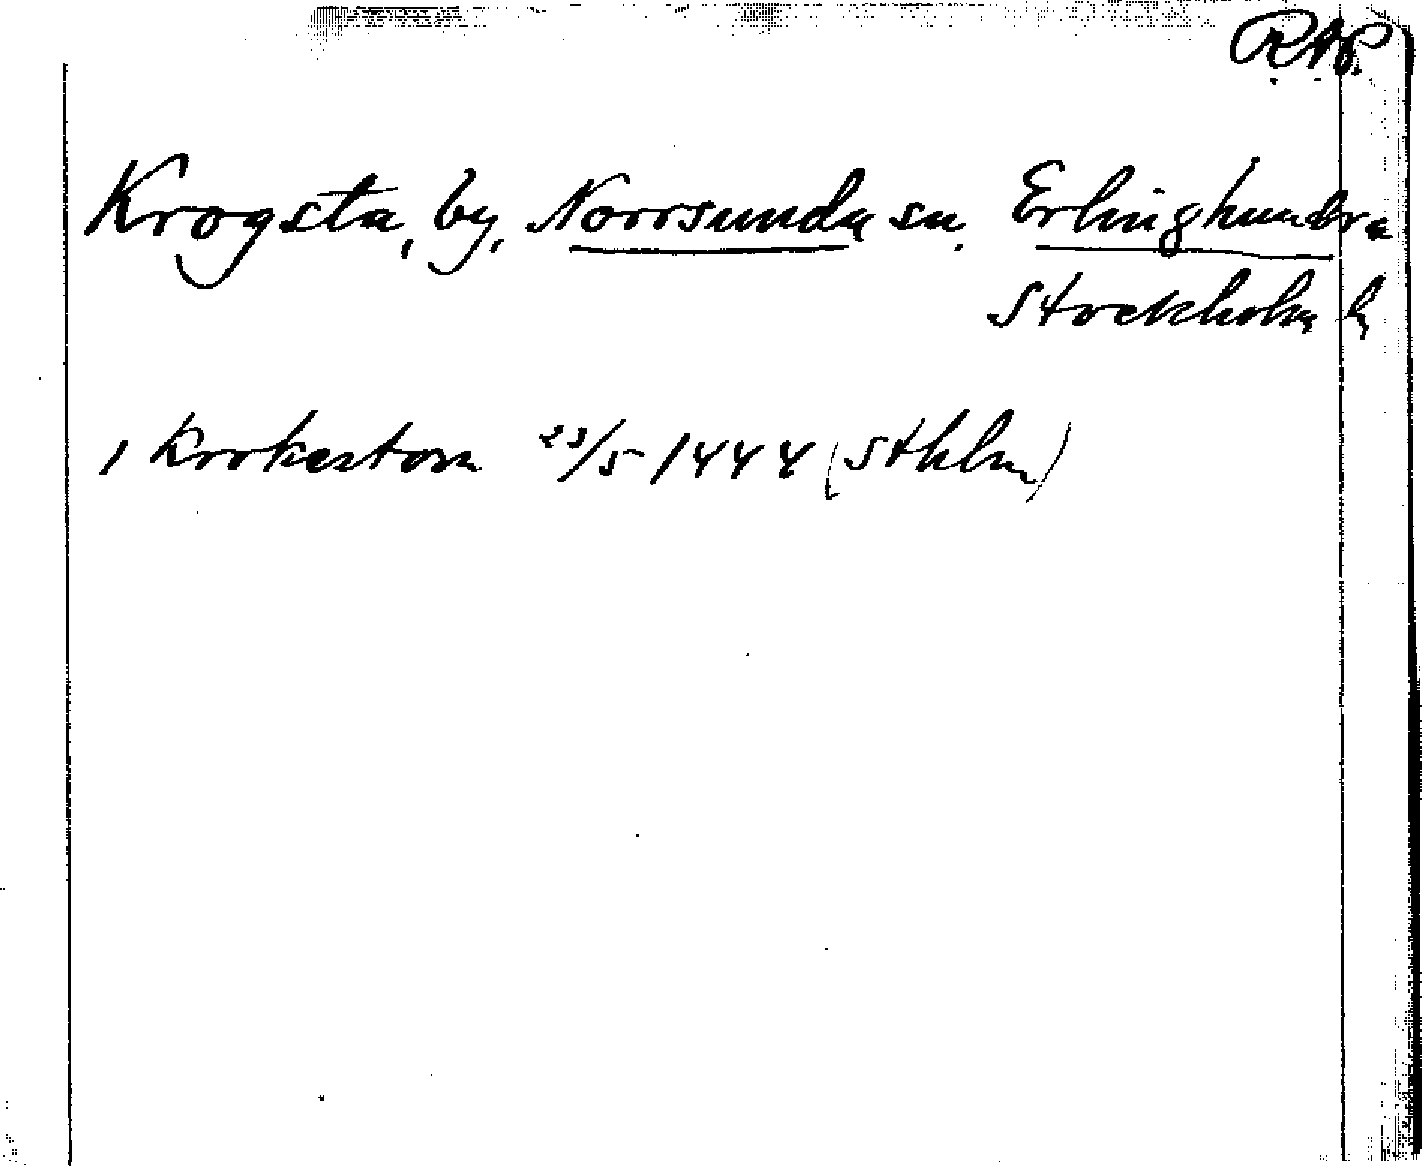 RAP.
Krogsta, by, Norrsunda sn. Erlinghundra
Stockholm l
, Krokestom 23/5 1444 (Sthlm)